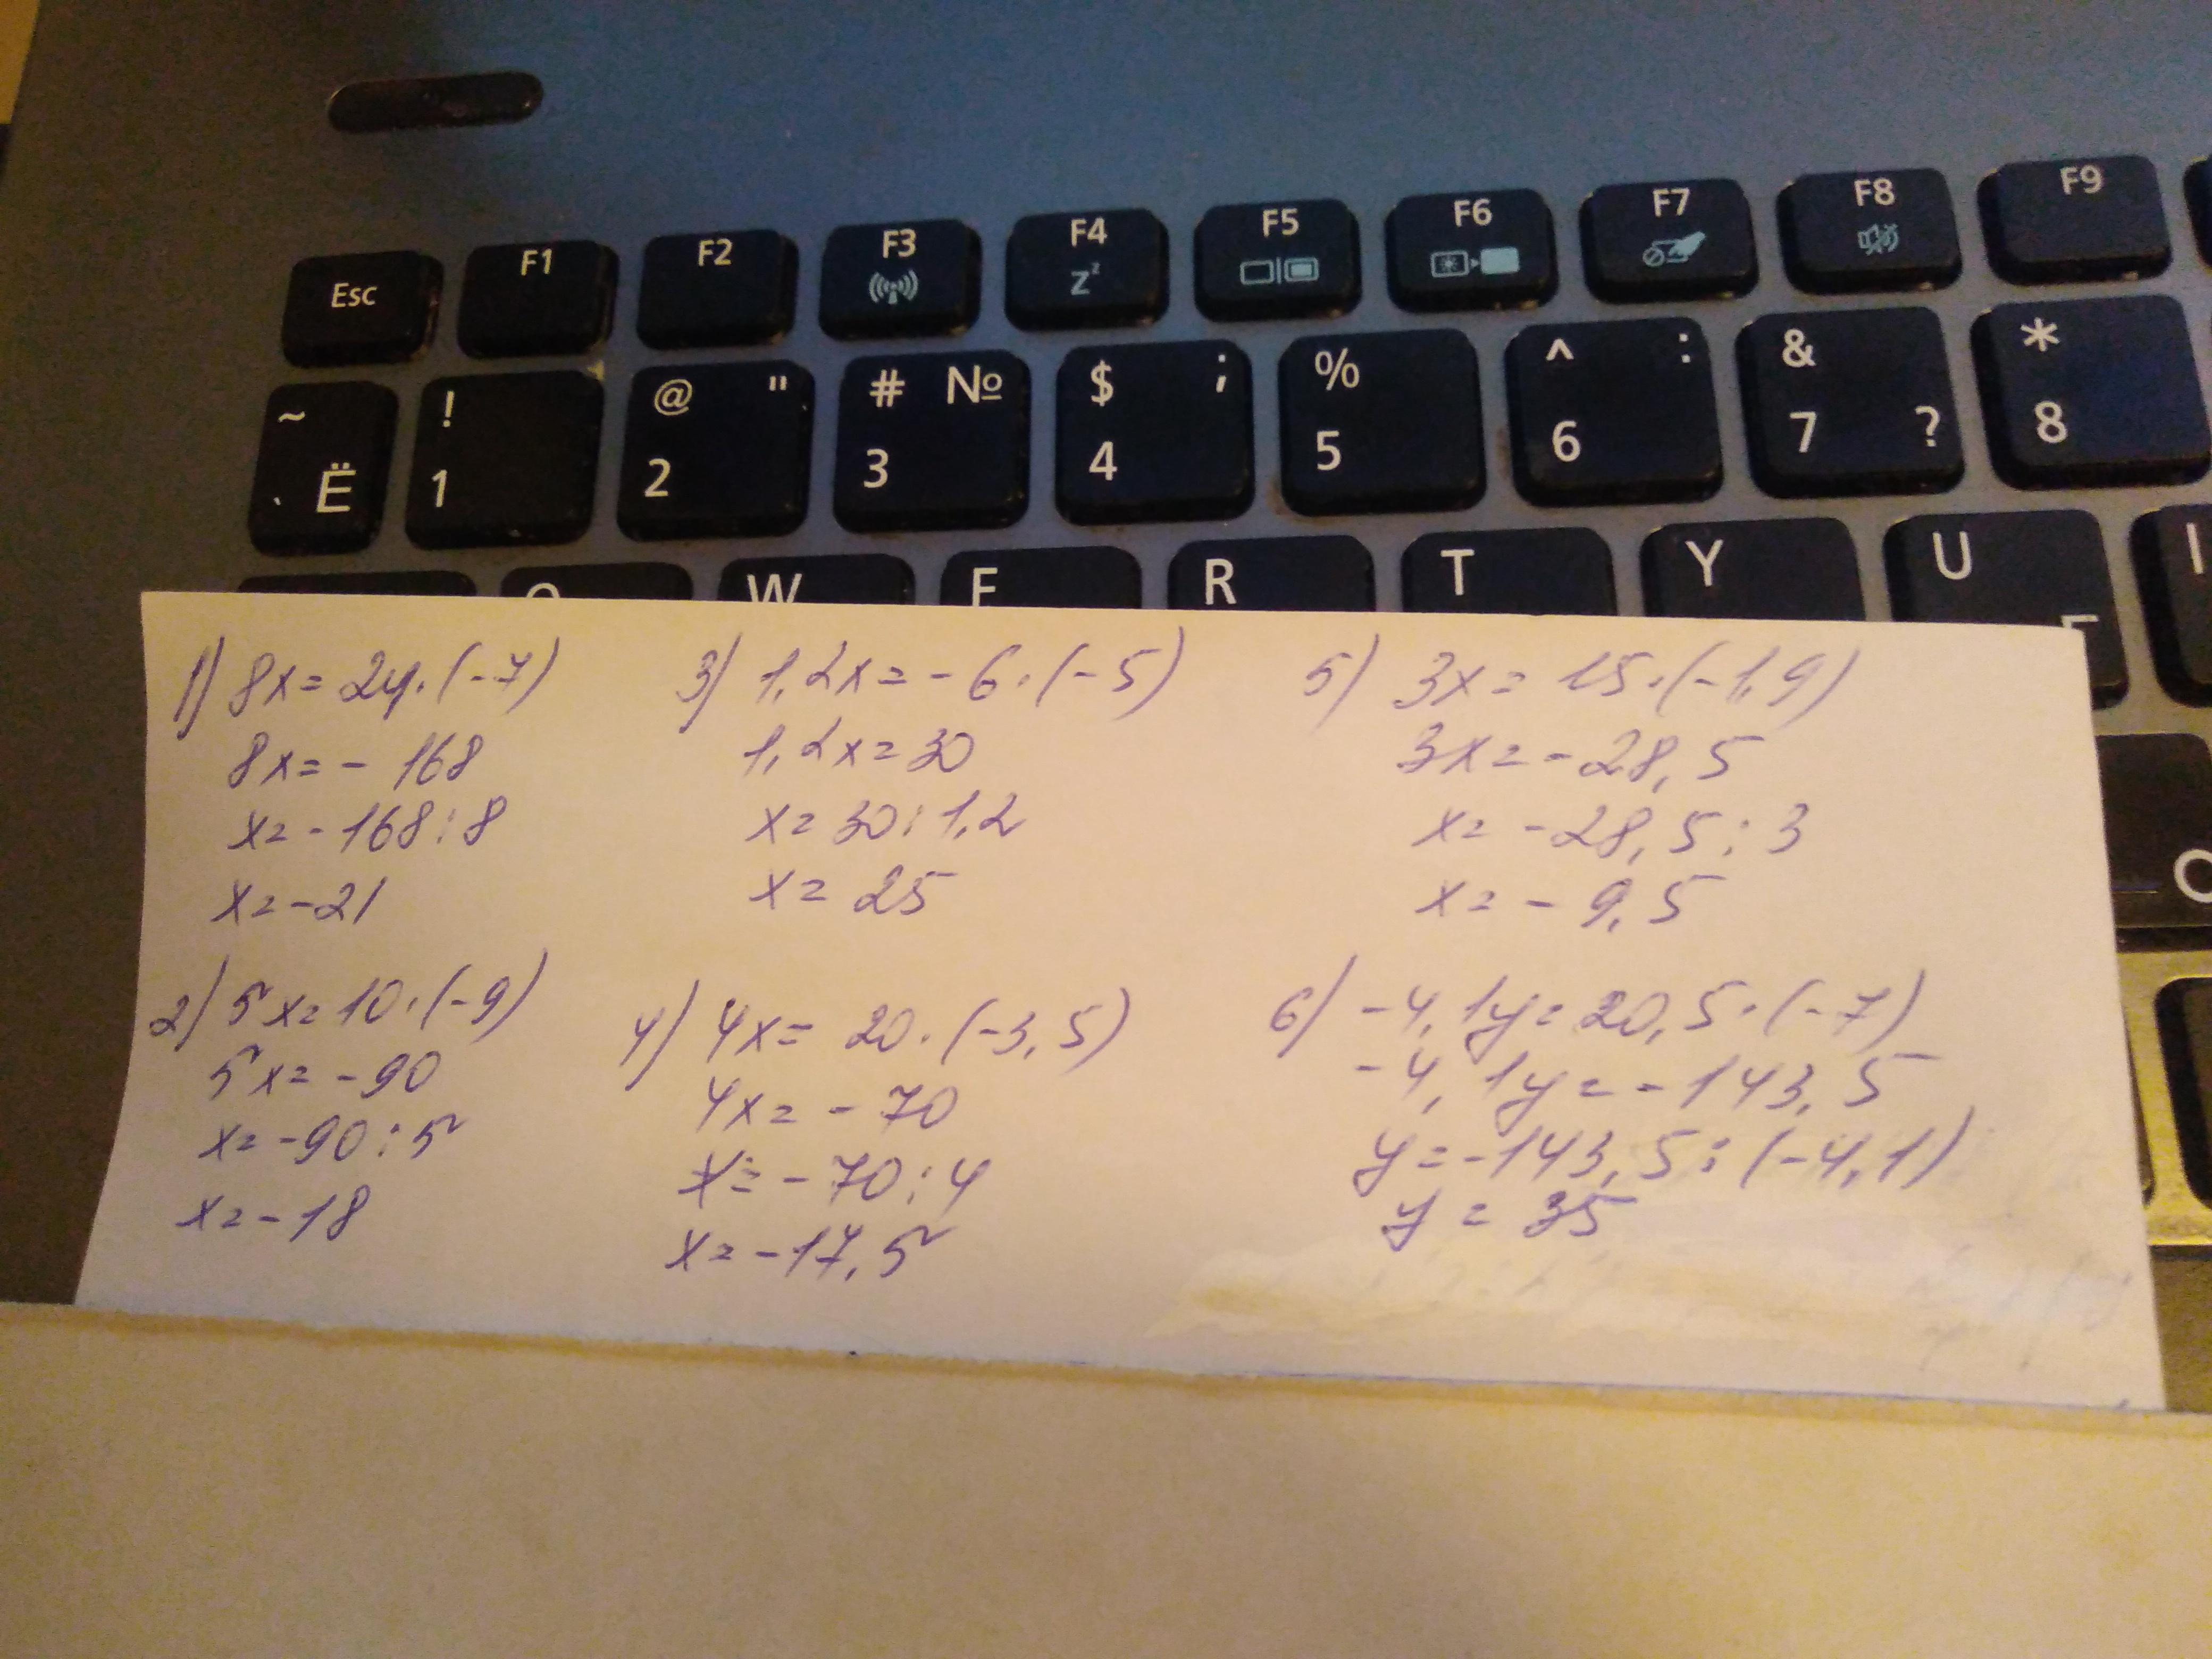 Esc F1 F2 F3 F4 F5 F6 F7 F8 F9
~ ` Ё ! 1 @ " 2 # № 3 $ ; 4 % 5 ^ : 6 & ? 7 * 8
W R T Y U
1) 8x = 24·(-7)
8x = - 168
x = - 168 : 8
x = -21
2) 5x = 10·(-9)
5x = -90
x = -90 : 5
x = -18
3) 1,2x = - 6·(-5)
1,2x = 30
x = 30 : 1,2
x = 25
4) 4x = 20·(-3,5)
4x = - 70
x = - 70 : 4
x = -17,5
5) 3x = 15·(-1,9)
3x = -28,5
x = -28,5 : 3
x = - 9,5
6) -4,1y = 20,5·(-7)
-4,1y = -143,5
y = -143,5 : (-4,1)
y = 35